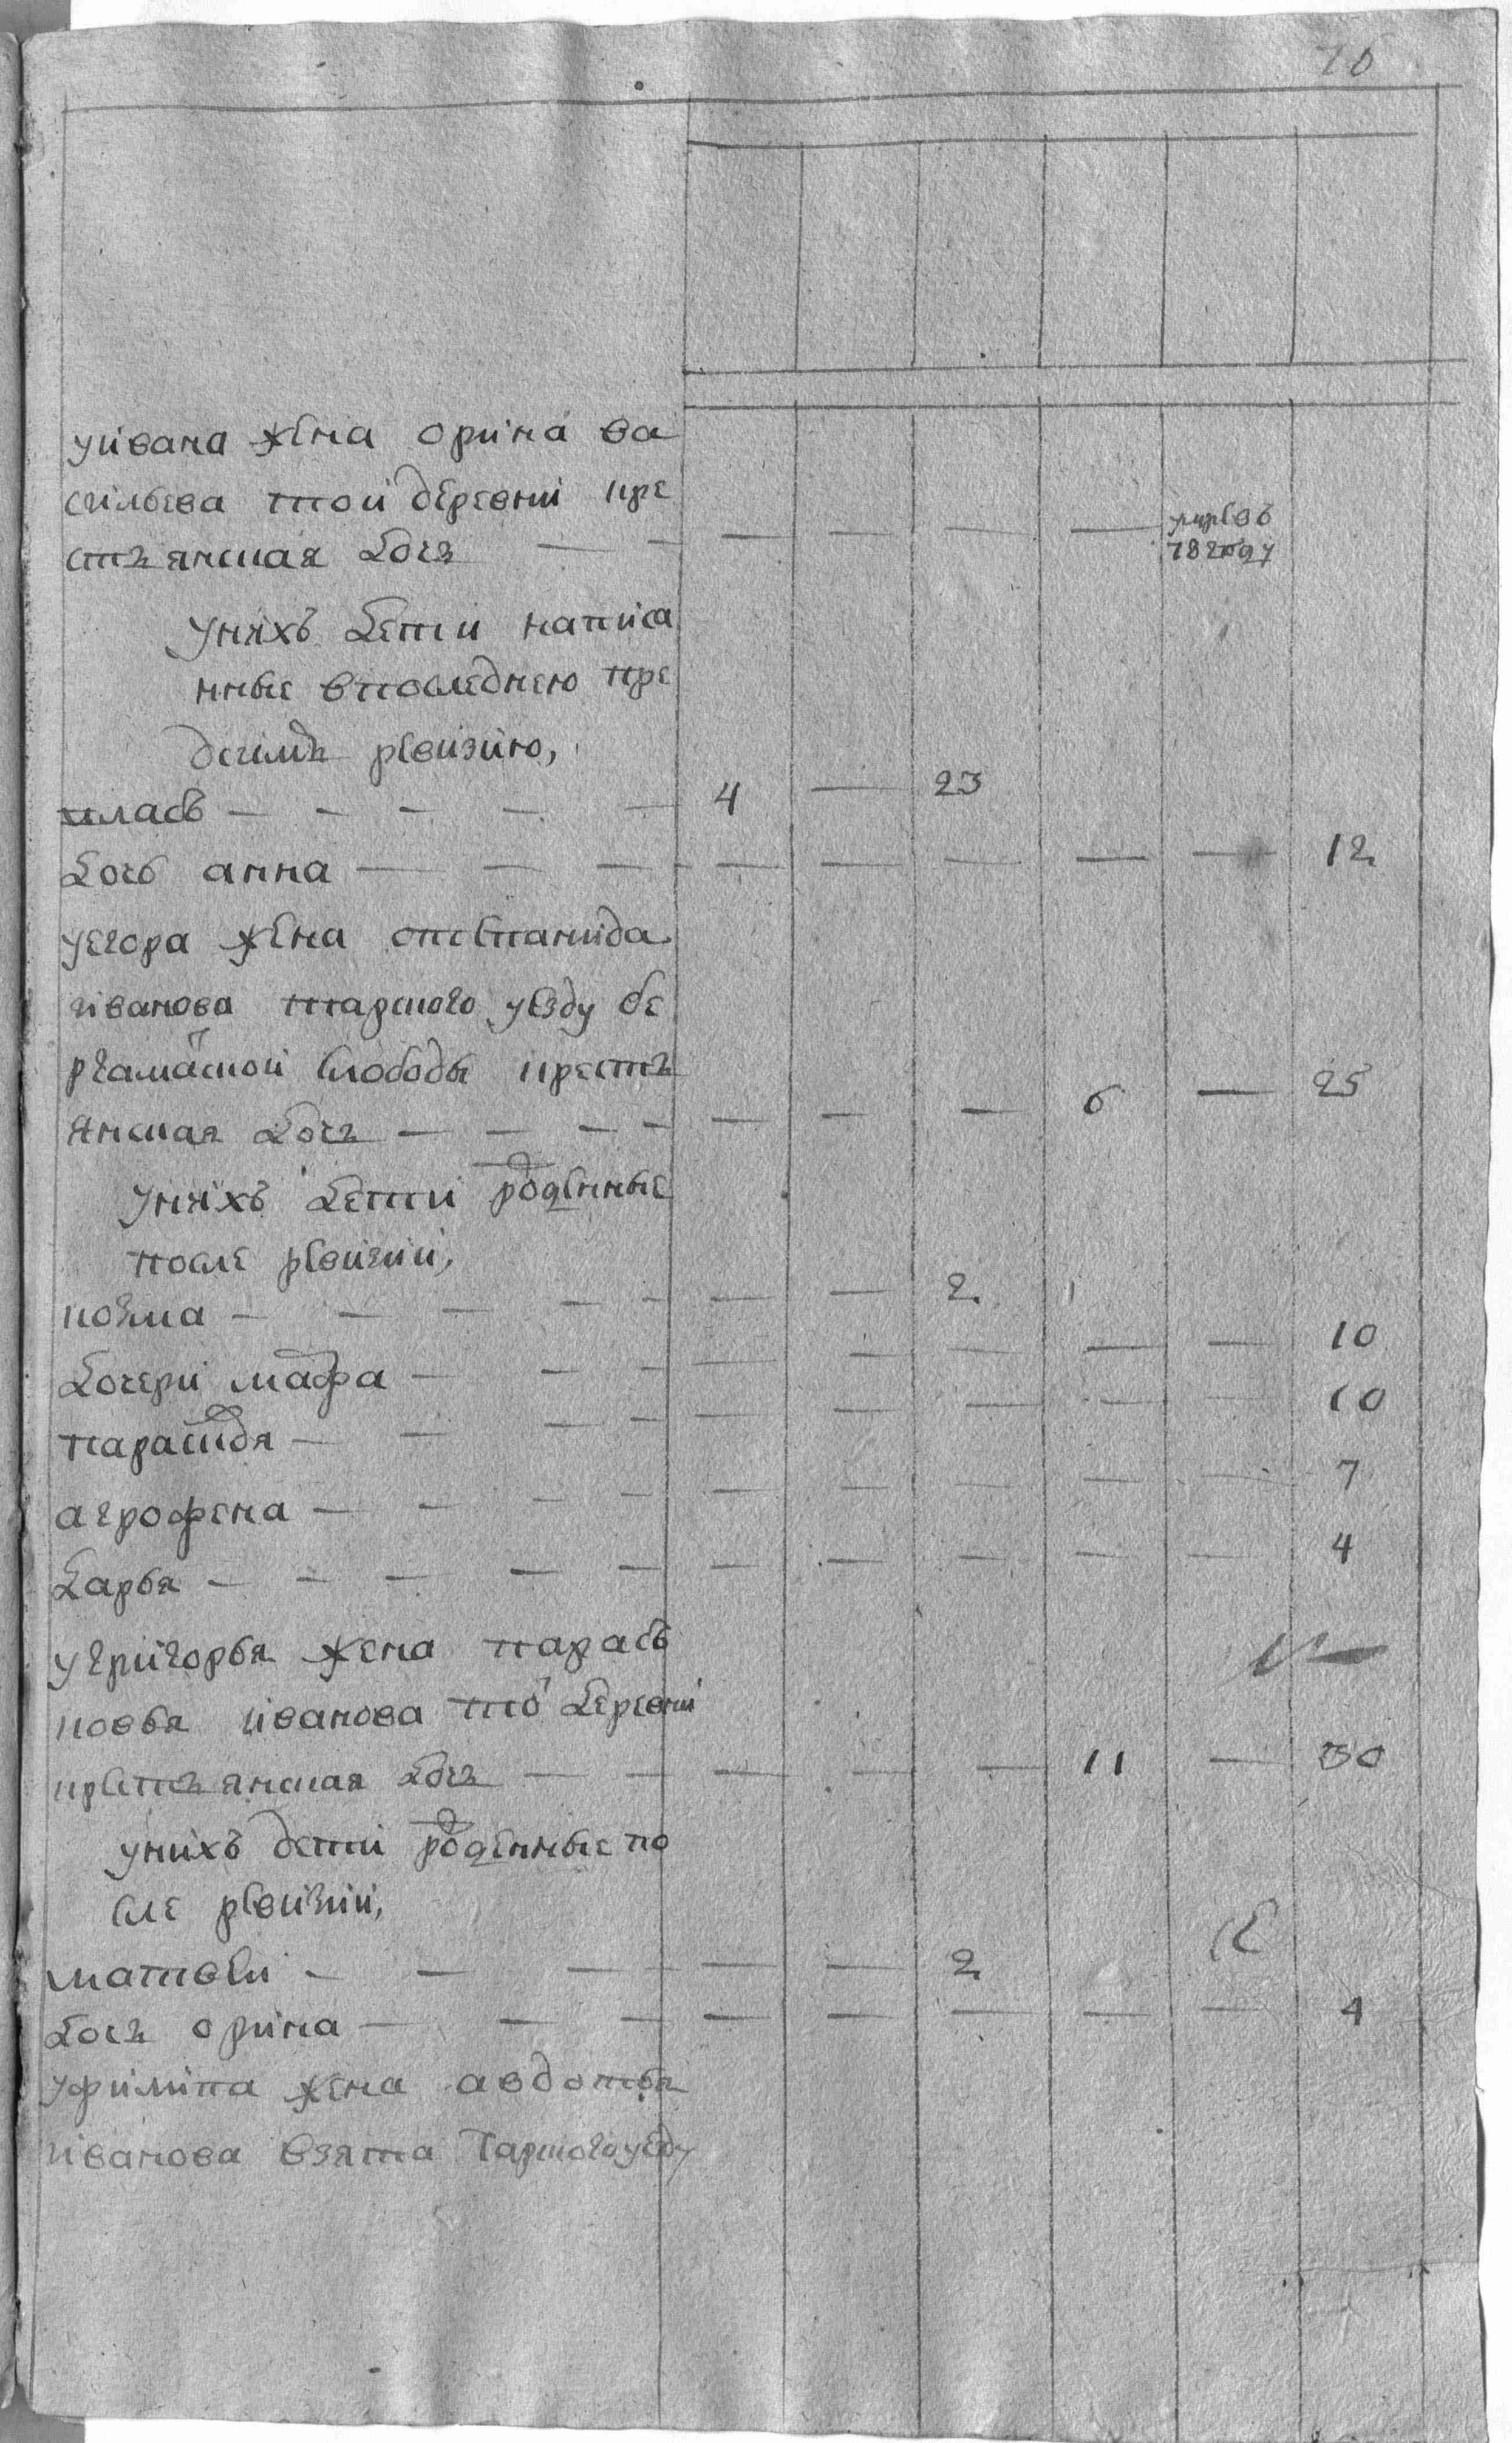 76
уивана жена орина ва
сильева той деревни кре
стъянская дочь — — — — — — умре въ
782 году
унихъ дети написа
нные впоследнею пре
дсимъ ревизию,
власъ — — — — — 4 — 23
дочь анна — — — — — — — — 12
уегора жена степанида
иванова тарского уезду бе
ргамацкой слободы крестъ
янская дочь — — — — — — — 6 — 25
унихъ дети рожденные
после ревизии,
козма — — — — — — — 2
дочери марфа — — — — — — — — 10
парасковья — — — — — — — — — 10
агрофена — — — — — — — — — 7
дарья — — — — — — — — — — 4
угригорья жена парас
ковья иванова той деревни
крестъянская дочь — — — — — 11 — 30
унихъ дети рожденные по
сле ревизии,
матвеи — — — — — 2
дочь орина — — — — — — — — 4
уфилипа жена авдотья
иванова взята тарского уезду